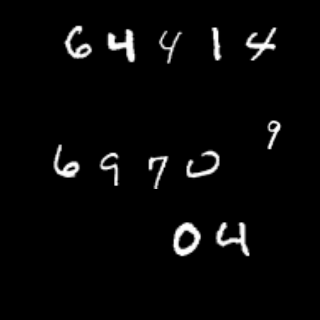 64414
6970 9
04